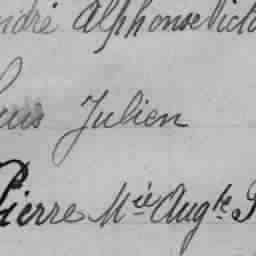 ndré Alphonse Victo
ouis Julien
Pierre Mie Augte P